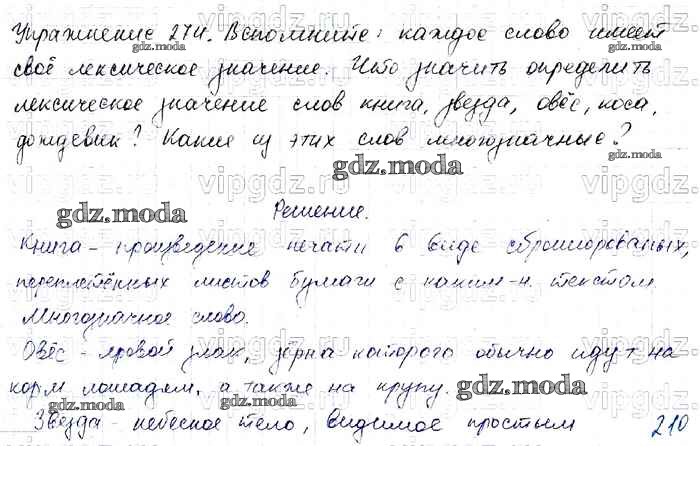 Упражнение 274. Вспомните: каждое слово имеет
gdz.moda gdz.moda
своё лексическое значение. Что значить определить
лексическое значение слов книга, звезда, овёс, коса,
дождевик? Какие из этих слов многозначные?
gdz.moda
gdz.moda Решение.
Книга - произведение печати в виде сброшюрованых,
переплетённых листов бумаги с каким-н. текстом.
gdz.moda
Многозначное слово.
Овёс - яровой злак, зёрна которого обычно идут на
корм лошадям, а также на крупу.
gdz.moda
gdz.moda gdz.moda
Звезда - небесное тело, видимое простым 210